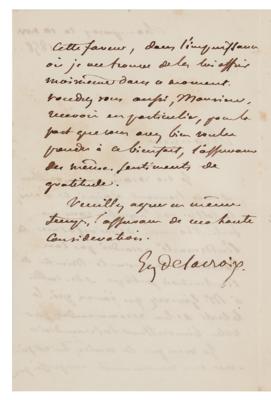 Cette faveur, dans l'impuissance
où je me trouve de les lui offrir
moi même dans ce moment.
veuillez vous aussi, Monsieur,
recevoir en particulier, pour la
part que vous avez bien voulu
prendre à ce bienfait, l'assurance
des mêmes sentiments de
gratitude.
Veuillez agréer en même
temps, l'assurance de ma haute
considération.
Eug Delacroix